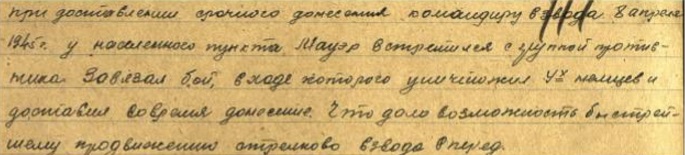 при доставлении срочного донесения командиру взвода 8 апреля
1945г. у населенного пункта Мауэр встретился с группой против-
ника. Завязал бой, входе которого уничтожил 4х немцев и
доставил вовремя донесение. Что дало возможность быстрей-
шему продвижению стрелково взвода вперед.